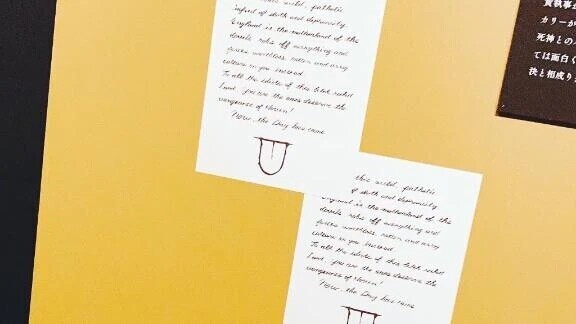 this wild, pathetic
of sloth and depravity.
England is the motherland of the
devils robs off everything and
gives worthless, rotten and
culture in you instead.
To all the idiots of this
Land, you are the ones deserve the
vengeance of Heaven!
Now, the Day has came
this wild, pathetic
of sloth and depravity.
England is the motherland of the
devils robs off everything and
gives worthless, rotten and
culture in you instead.
To all the idiots of this
Land, you are the ones deserve the
vengeance of Heaven!
Now, the Day has came
執事
カリーが
死神との
ては面白く
決と相成り